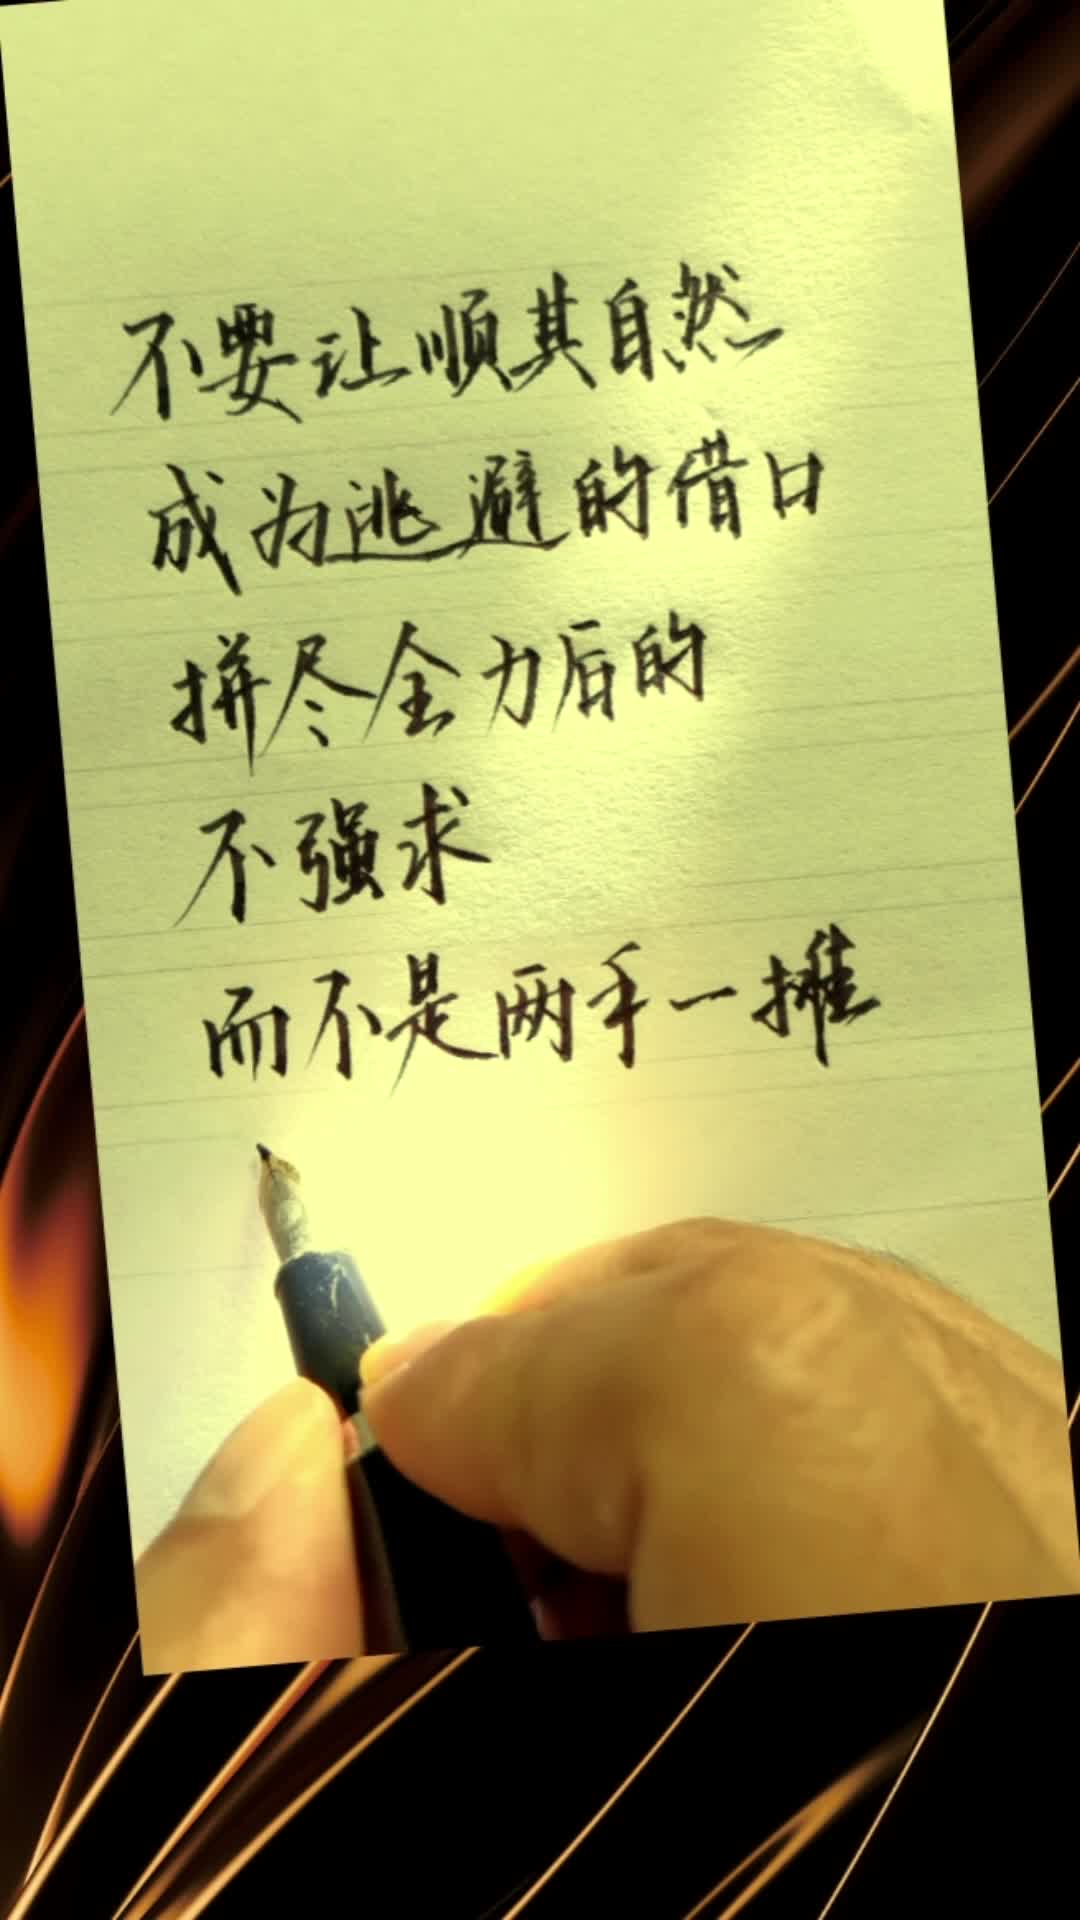 不要让顺其自然
成为逃避的借口
拼尽全力后的
不强求
而不是两手一摊